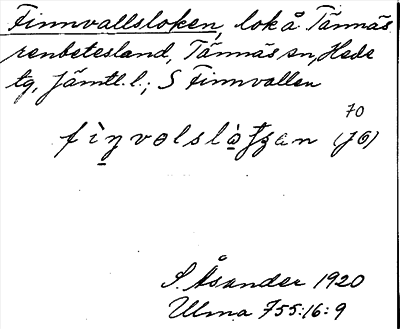 Finnvallsloken, lok å. Tännäs
renbetesland, Tännäs sn, Hede
tg, Jämtl. l.; S Finnvallen
70
(70)
S. Åsander 1920
Ulma 755:16:9